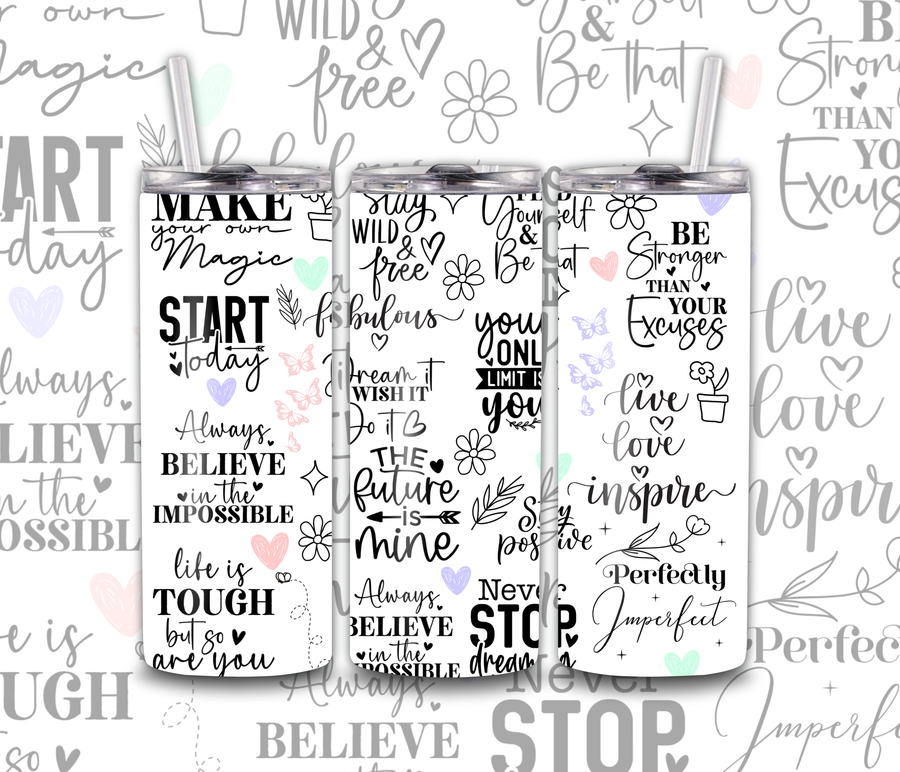 MAKE
your own
Magic
START
today
Always
BELIEVE
in the
IMPOSSIBLE
life is
TOUGH
but so
are you
Stay
WILD
&
free
fabulous
Dream it
WISH IT
Do it
THE
future
is
mine
Always
BELIEVE
in the
IMPOSSIBLE
Yourself
&
Be that
your
ONLY
LIMIT IS
you
Stay
positive
Never
STOP
dreaming
BE
Stronger
THAN
YOUR
Excuses
live
love
inspire
Perfectly
Imperfect
your own
Magic
START
today
Always
BELIEVE
in the
IMPOSSIBLE
life is
TOUGH
but so
WILD
&
free
fabulous
&
Be that
BE
Stronger
THAN
YOUR
Excuses
live
love
inspire
Perfectly
Imperfect
Always
BELIEVE
in the
Never
STOP